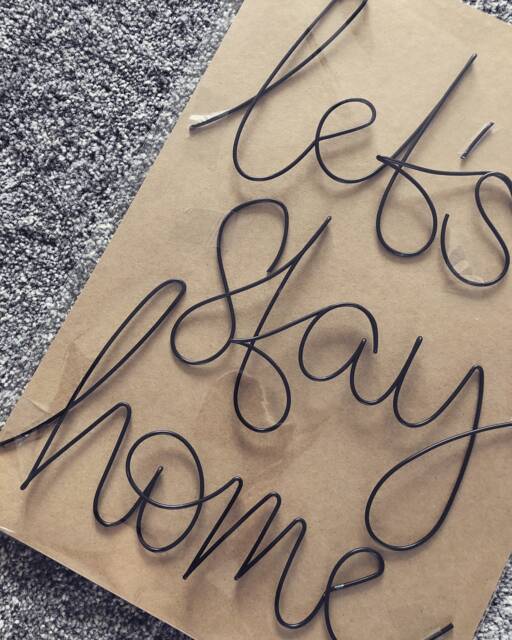 let's
stay
home